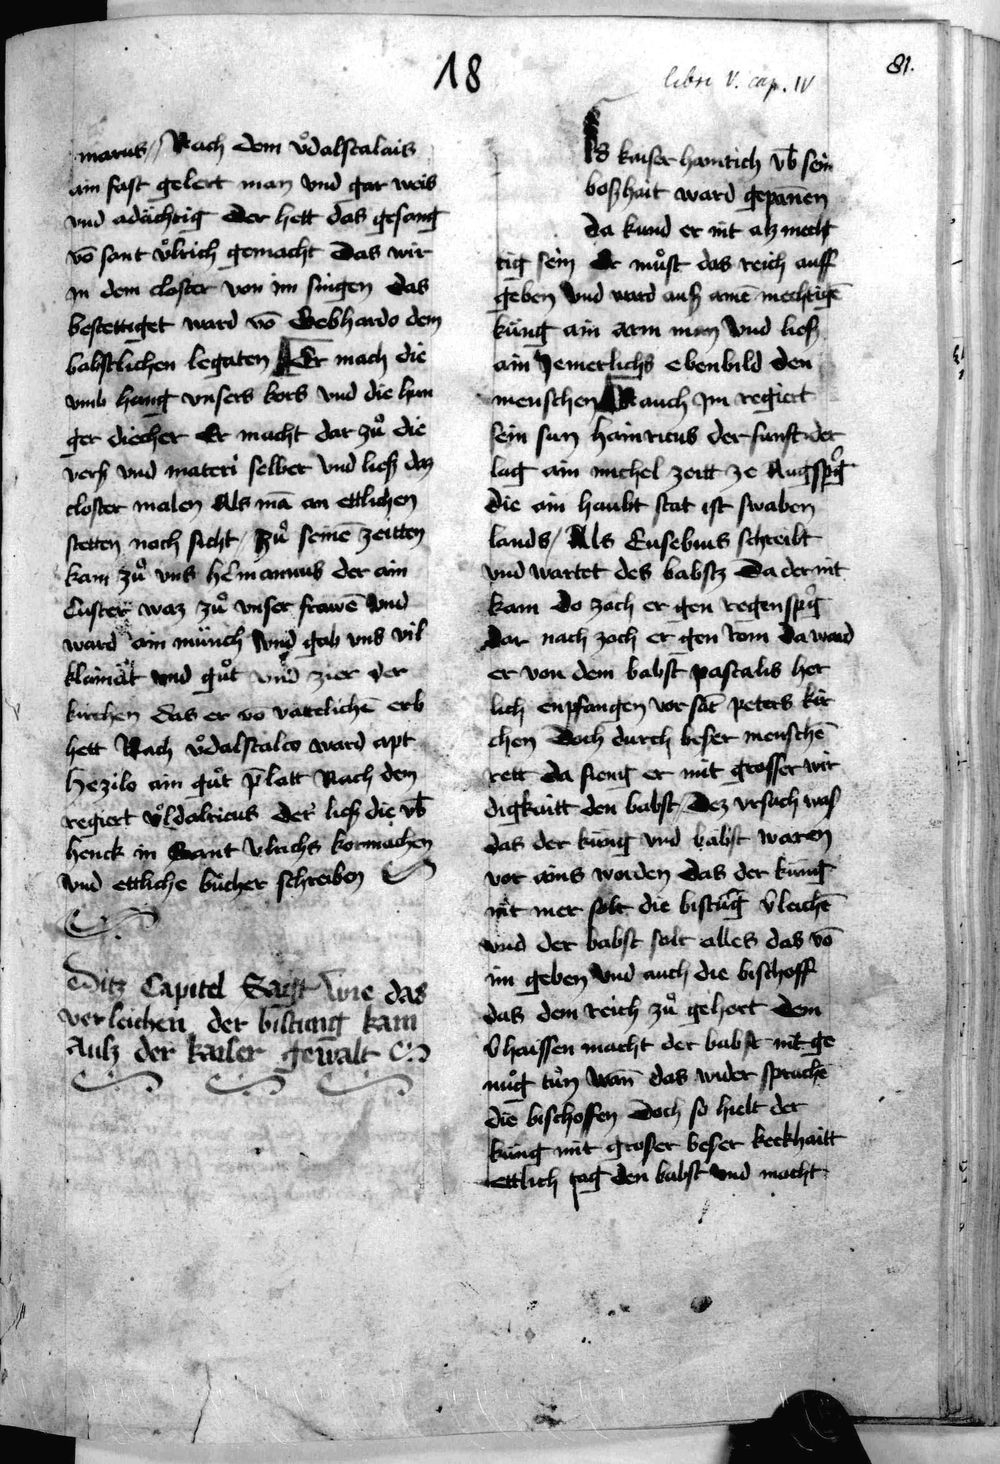 18
libri V. cap. IV
81.
marus / Nach dem vͦdalscalcis
ain fast gelert man vnd gar weis
vnd adächtig Der hett das gesang
vō sant vͦlrich gemacht Das wir
jn dem closter von im singen Das
bestettiget ward vō Gebhardo dem
bäbstlichen legaten Er mach die
vmb hang vnsers kors vnd die hun
ger diecher Er macht dar zuͦ die
verß vnd materi selber vnd ließ das
closter malen Als mā an ettlichen
stetten noch sicht / Zuͦ seinē zeitten
kam zuͦ vns hermannus der ain
Custer waz zuͦ vnser frawē vnd
ward ain münch vnd gab vns vil
klainät vnd guͦt vnd zier der
kirchen das er vō vatterlichē erb
hett Nach vͦdalscalco ward apt
Hezilo ain guͦt p̄latt Nach den
regiert vͦldalricus der ließ die vb̄
henck in Sant Vlrichs kor machen
vnd ettliche buͤcher schreiben
Ditz Capitel Sagt wie das
verleichen der bistung kam
Aulz der kaiser gewalt
Als kaiser hainrich vb̄ sein
boßhait ward gepanen
da kund er nit alz mech
tig sein Er muͦst das reich auff
geben Vnd ward auß ainē mechtigē
küng ain arm man Vnd ließ
ain Jemerlichs ebenbild den
menschen Nauch Jm regiert
sein sun hainricus der funft der
lag ain michel zeitt ze Augspg
die ain haubt stat ist swaben
lands / Als Eusebius schreibt
vnd wartet des babstz Da der nit
kam do zoch er gen regenspg
dar nach zoch er gen rom da ward
er von dem babst pascalis her
lich enpfangen vor sāt peters kir
chen Doch durch beser menschē
rett da fieng er mit grosser wir
digkaitt den babst / Dez vrsach was
das der küng vnd babst waren
vor ains worden das der küng
nit mer solt die bistūg v̄leichē
vnd der babst solt alles das vō
im geben Vnd auch die bischoff
das dem reich zuͦ gehort Dem
v̄haissen macht der babst nit ge
nuͦg tuͦn Wan̄ das wider sprachē
die bischoffen Doch so hielt der
küng mit groser beser keckhaitt
ettlich tag den babst vnd macht